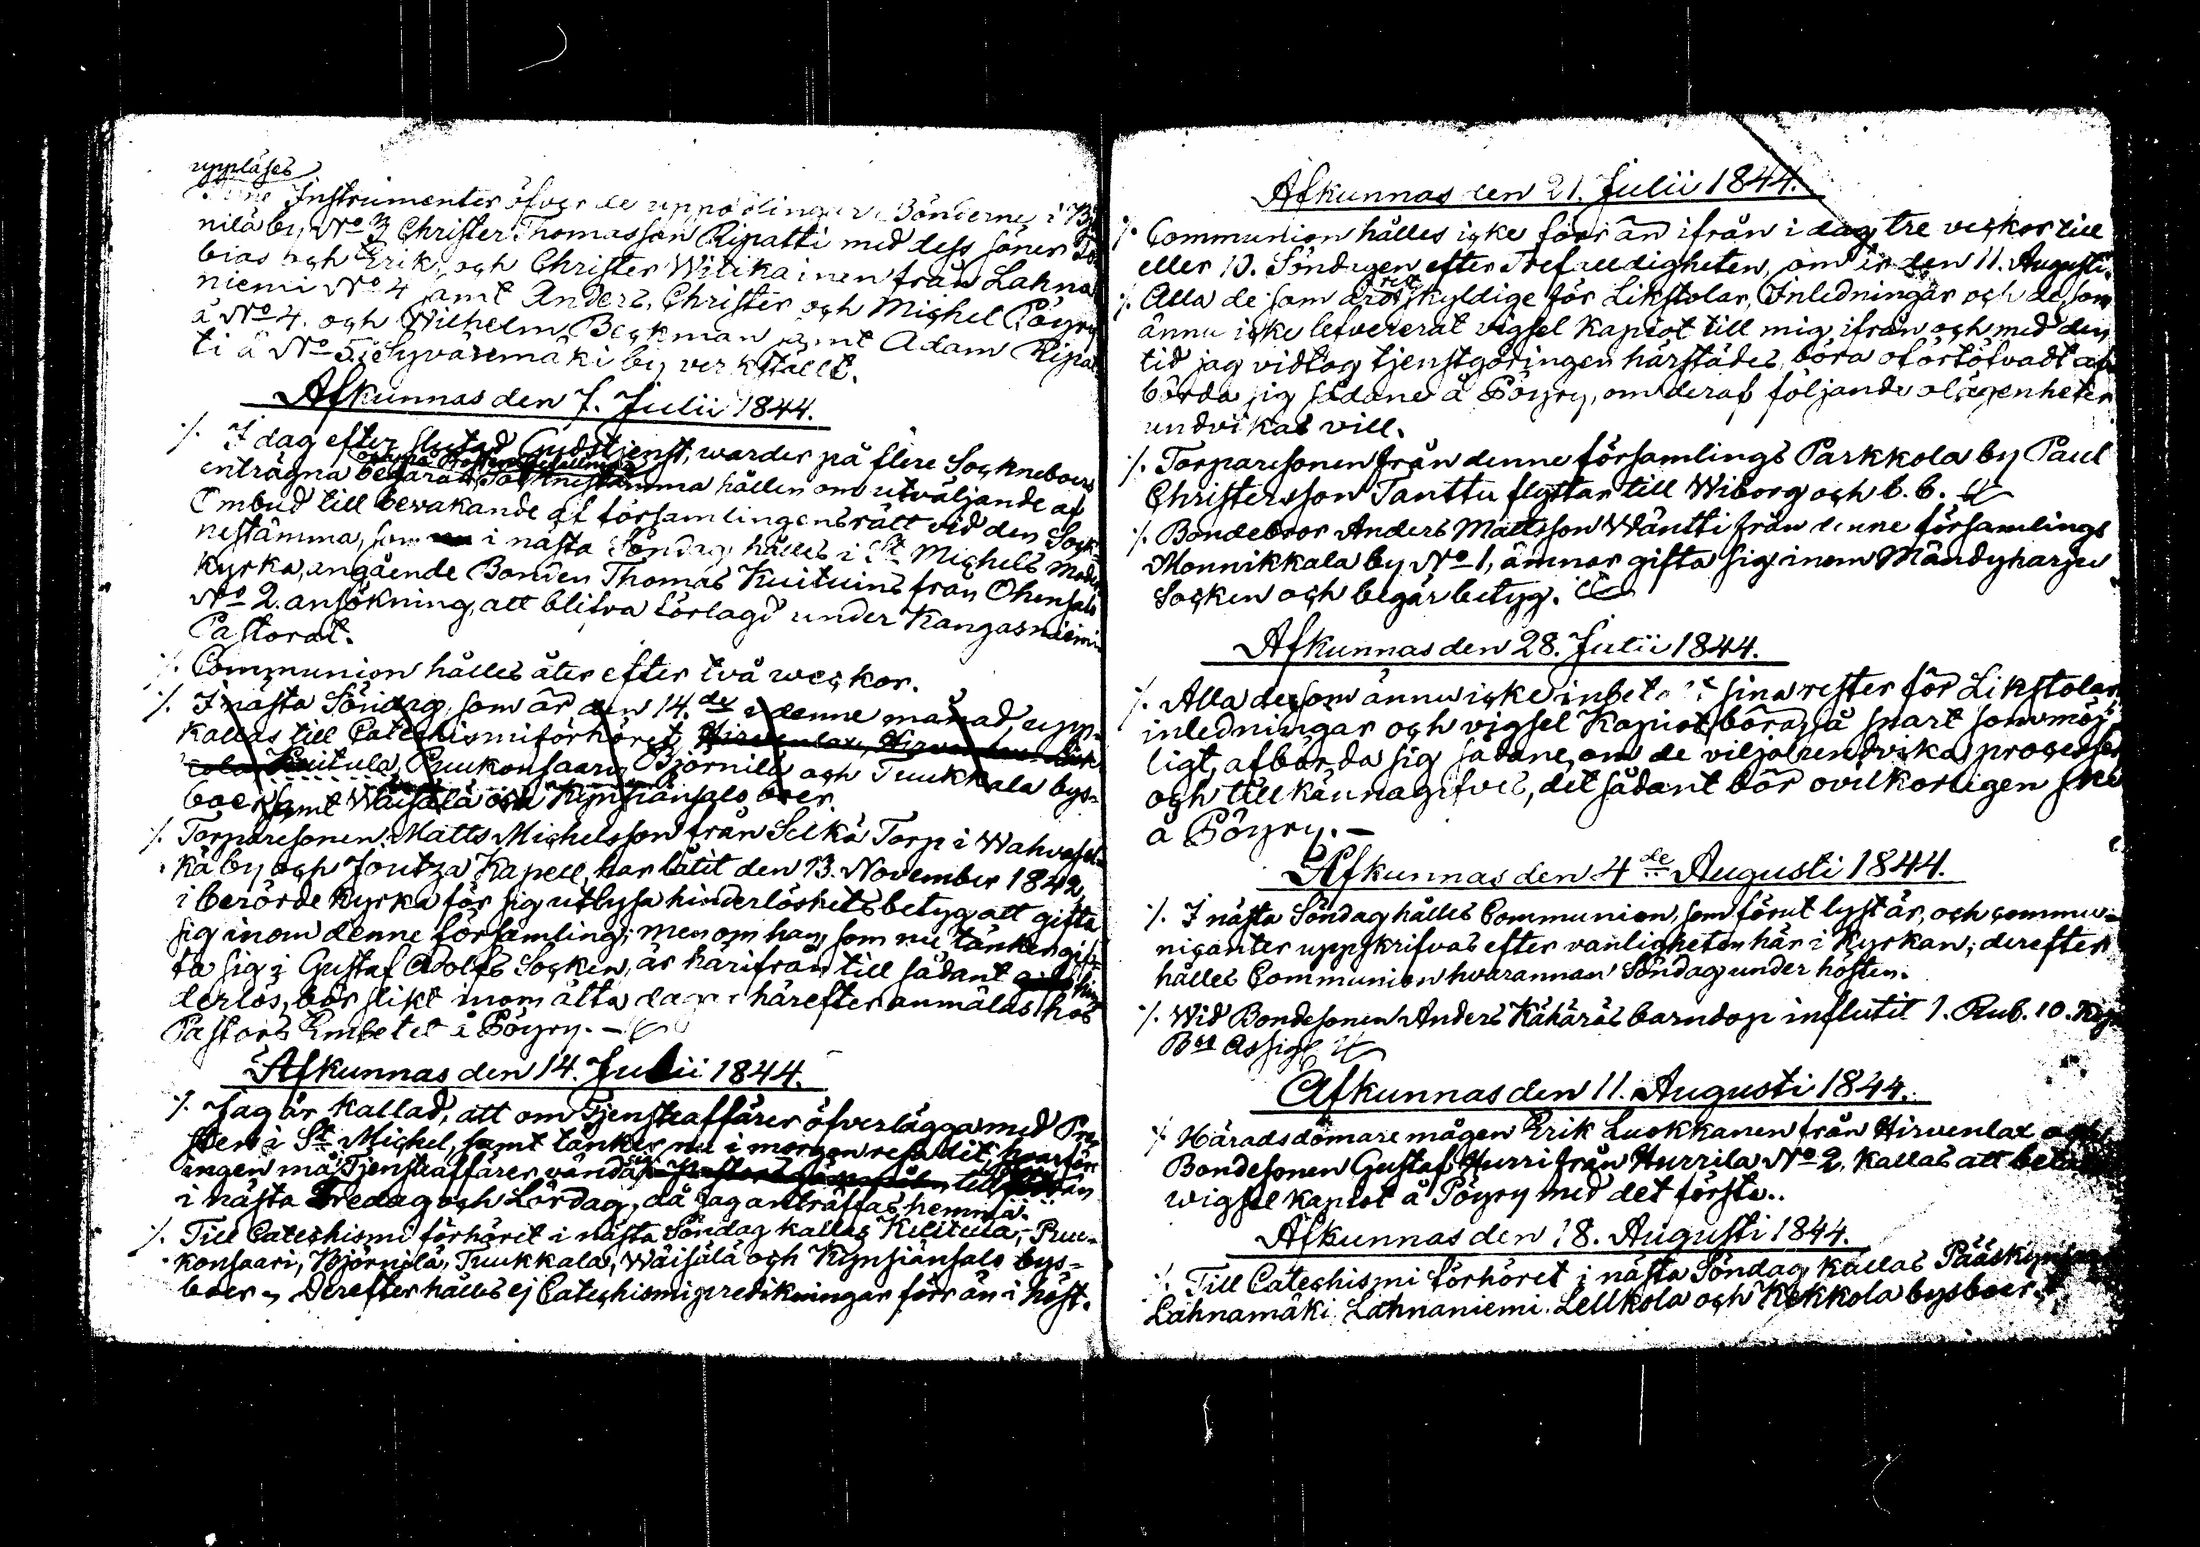 uppläses
Instrumenter öfver de uppodlingar Bönderne i Bjö
nilä by, No 3 Christer Thomasson Ripatti med dess söner To
bias och Erik, och Christer Witikainen från Lahna
niemi No 4 samt Anders, Christer och Michel Pöyry
å No 4. och Wilhelm Beckman samt Adam Ripat
ti å No 5 i Syväsmäki by verkställt.
Afkunnas den 7. Julii 1844.
./. I dag efter slutad Gudstjenst, warder på flere Sockneboers
enträgna begäran Socknestämma hållen om utväljande af
Ombud till bevakande af församlingens rätt vid den Sock-
nestämma, som i nästa Söndag hålles i St Michels Moder
Kyrka, angående Bonden Thomas Kuituins från Ohensalo
No 2. ansökning, att blifva förlagd under Kangasniemi
Pastorat.
./. Communion hålles åter efter två weckor.
./. I nästa Söndag, som är den 14.de i denne månad, upp-
kallas till Catechismiförhöret, Hirvenlax,
Kuitula, Puukonsaari, Björnilä och Tuukkala bys-
boer samt Wäisälä och Kynsiänsalo boer.
./. Torparesonen Matts Michelsson från Selkä Torp i Wahvasel-
kä by och Joutza Kapell, har låtit den 13. November 1842,
i berörde Kyrka för sig utlysa hinderlöshetsbetyg att gifta
sig inom denne församling; men om han, som nu tänker gif-
ta sig i Gustaf Adolfs Socken, är härifrån till sådant hin
derlös, bör slikt inom åtta dagar härefter anmälas hos
Pastors Embetet å Pöyry. —
Afkunnas den 14. Julii 1844.
./. Jag är kallad, att om Tjensteaffärer öfverlägga med Pro-
sten i St Michel, samt tänker nu i morgon resa dit, hvarföre
ingen må i Tjensteaffärer vända sig till
i nästa Fredag och Lördag, då jag anträffas hemma.
./. Till Catechismi förhöret i nästa Söndag kallas Kuitula, Puu-
konsaari, Björnilä, Tuukkala, Wäisälä och Kynsiänsalo bys-
boer. Derefter hålles ej Catechismipredikningar förr än i höst.
Afkunnas den 21. Julii 1844.
./. Communion hålles icke förr än ifrån i dag tre veckor till
eller 10. Söndagen efter Trefaldigheten, som är den 11. Augusti.
./. Alla de som äro skyldige för Likstolar, Inledningar och de som
ännu icke lefvererat vigsel Kapiot till mig, ifrån och med den
tid jag vidtog tjenstgöringen härstädes, böra oförtöfvadt af
börda sig sådane å Pöyry, om deraf följande olägenheter
undvikas vill.
./. Torparesonen från denne församlings Parkkola by Paul
Christersson Tanttu flyttar till Wiborg och b. b.
./. Bondebror Anders Mattsson Wäntti från denne församlings
Monnikkala by No 1, ämnar gifta sig inom Mändyharju
Socken och begär betyg.
Afkunnas den 28. Julii 1844.
./. Alla de som ännu icke inbetalt sina rester för Likstolar,
inledningar och vigsel Kapiot böra, så snart som möj-
ligt, afbörda sig sådane, om de vilja undvika processer
och tillkännagifves, det sådant bör ovilkorligen ske
å Pöyry. —
Afkunnas den 4de Augusti 1844.
./. I nästa Söndag hålles Communion, som förut lyst är, och commu-
nicanter uppskrifvas efter vanligheten här i Kyrkan; derefter
hålles Communion hvarannan Söndag under hösten.
./. Wid Bondesonen Anders Kähäräs barndop influtit 1. Rub. 10. Kop
Bco Assign
Afkunnas den 11. Augusti 1844.
./. Häradsdomare mågen Erik Luukkanen från Hirvenlax och
Bondesonen Gustaf Hurri från Hurrila No 2. kallas att betala
wigsel kapiot å Pöyry med det första.
Afkunnas den 18. Augusti 1844.
./. Till Catechismi förhöret i nästa Söndag kallas
Lahnamäki, Lahnaniemi, Lellkola och Kekkola bysboer.